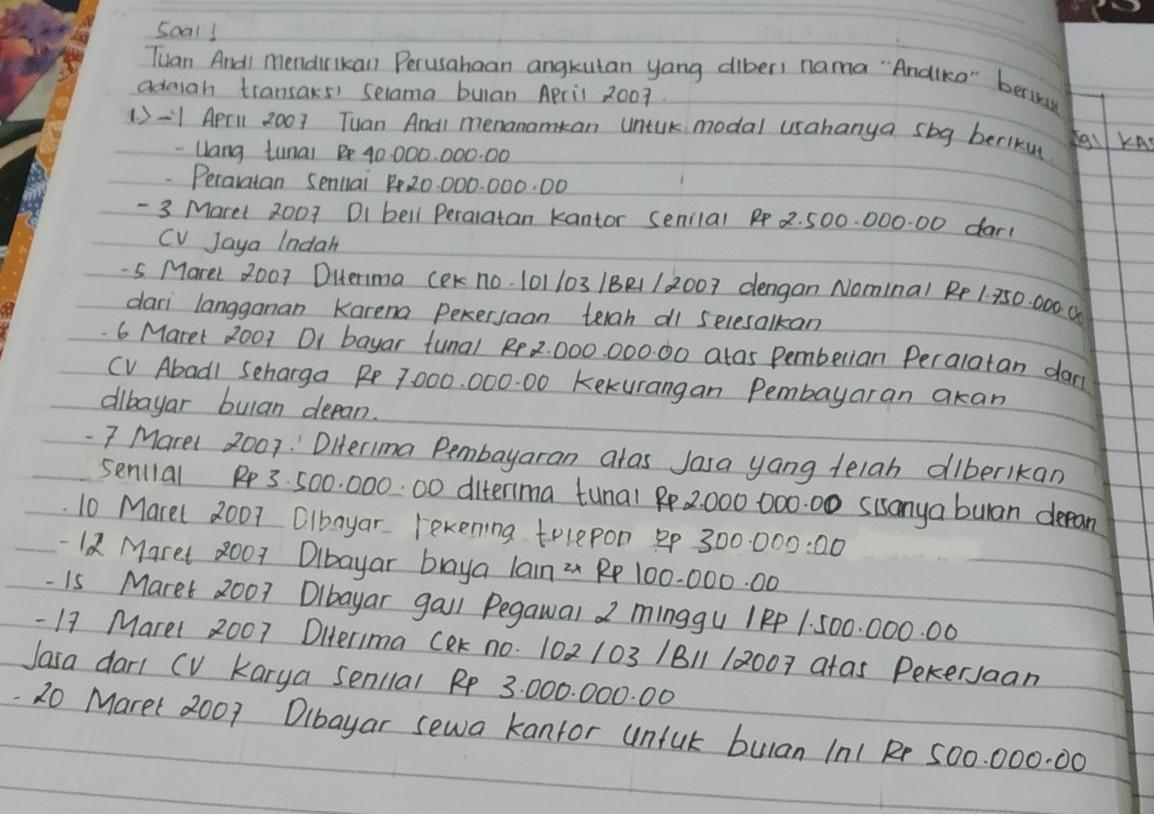 Soal !
Tuan Andi mendirikan Perusahaan angkutan yang diberi nama "Andika" berikut
adalah transaksi selama bulan April 2007.
1.) - 1 April 2007 Tuan Andi menanamkan untuk modal usahanya sbg berikut
- Uang tunai Rp 40.000.000.00
- Peralatan senilai Rp 20.000.000.00
- 3 Maret 2007 Di beli Peralatan kantor senilai Rp 2.500.000.00 dari
CV Jaya Indah
- 5 Maret 2007 Diterima cek no. 101/03/BRI/2007 dengan Nominal Rp 1.750.000.00
dari langganan karena Pekerjaan telah di selesaikan
- 6 Maret 2007 Di bayar tunai Rp 2.000.000.00 atas Pembelian Peralatan dari
CV Abadi seharga Rp 7.000.000.00 kekurangan Pembayaran akan
dibayar bulan depan.
- 7 Maret 2007. Diterima Pembayaran atas Jasa yang telah diberikan
senilai Rp 3.500.000.00 diterima tunai Rp 2.000.000.00 sisanya bulan depan
. 10 Maret 2007 Dibayar rekening telepon Rp 300.000.00
- 12 Maret 2007 Dibayar biaya lain 2x Rp 100.000.00
- 15 Maret 2007 Dibayar gaji Pegawai 2 minggu 1 Rp 1.500.000.00
- 17 Maret 2007 Diterima cek no. 102/03/BII/2007 atas Pekerjaan
Jasa dari CV Karya senilai Rp 3.000.000.00
- 20 Maret 2007 Dibayar sewa kantor untuk bulan ini Rp 500.000.00